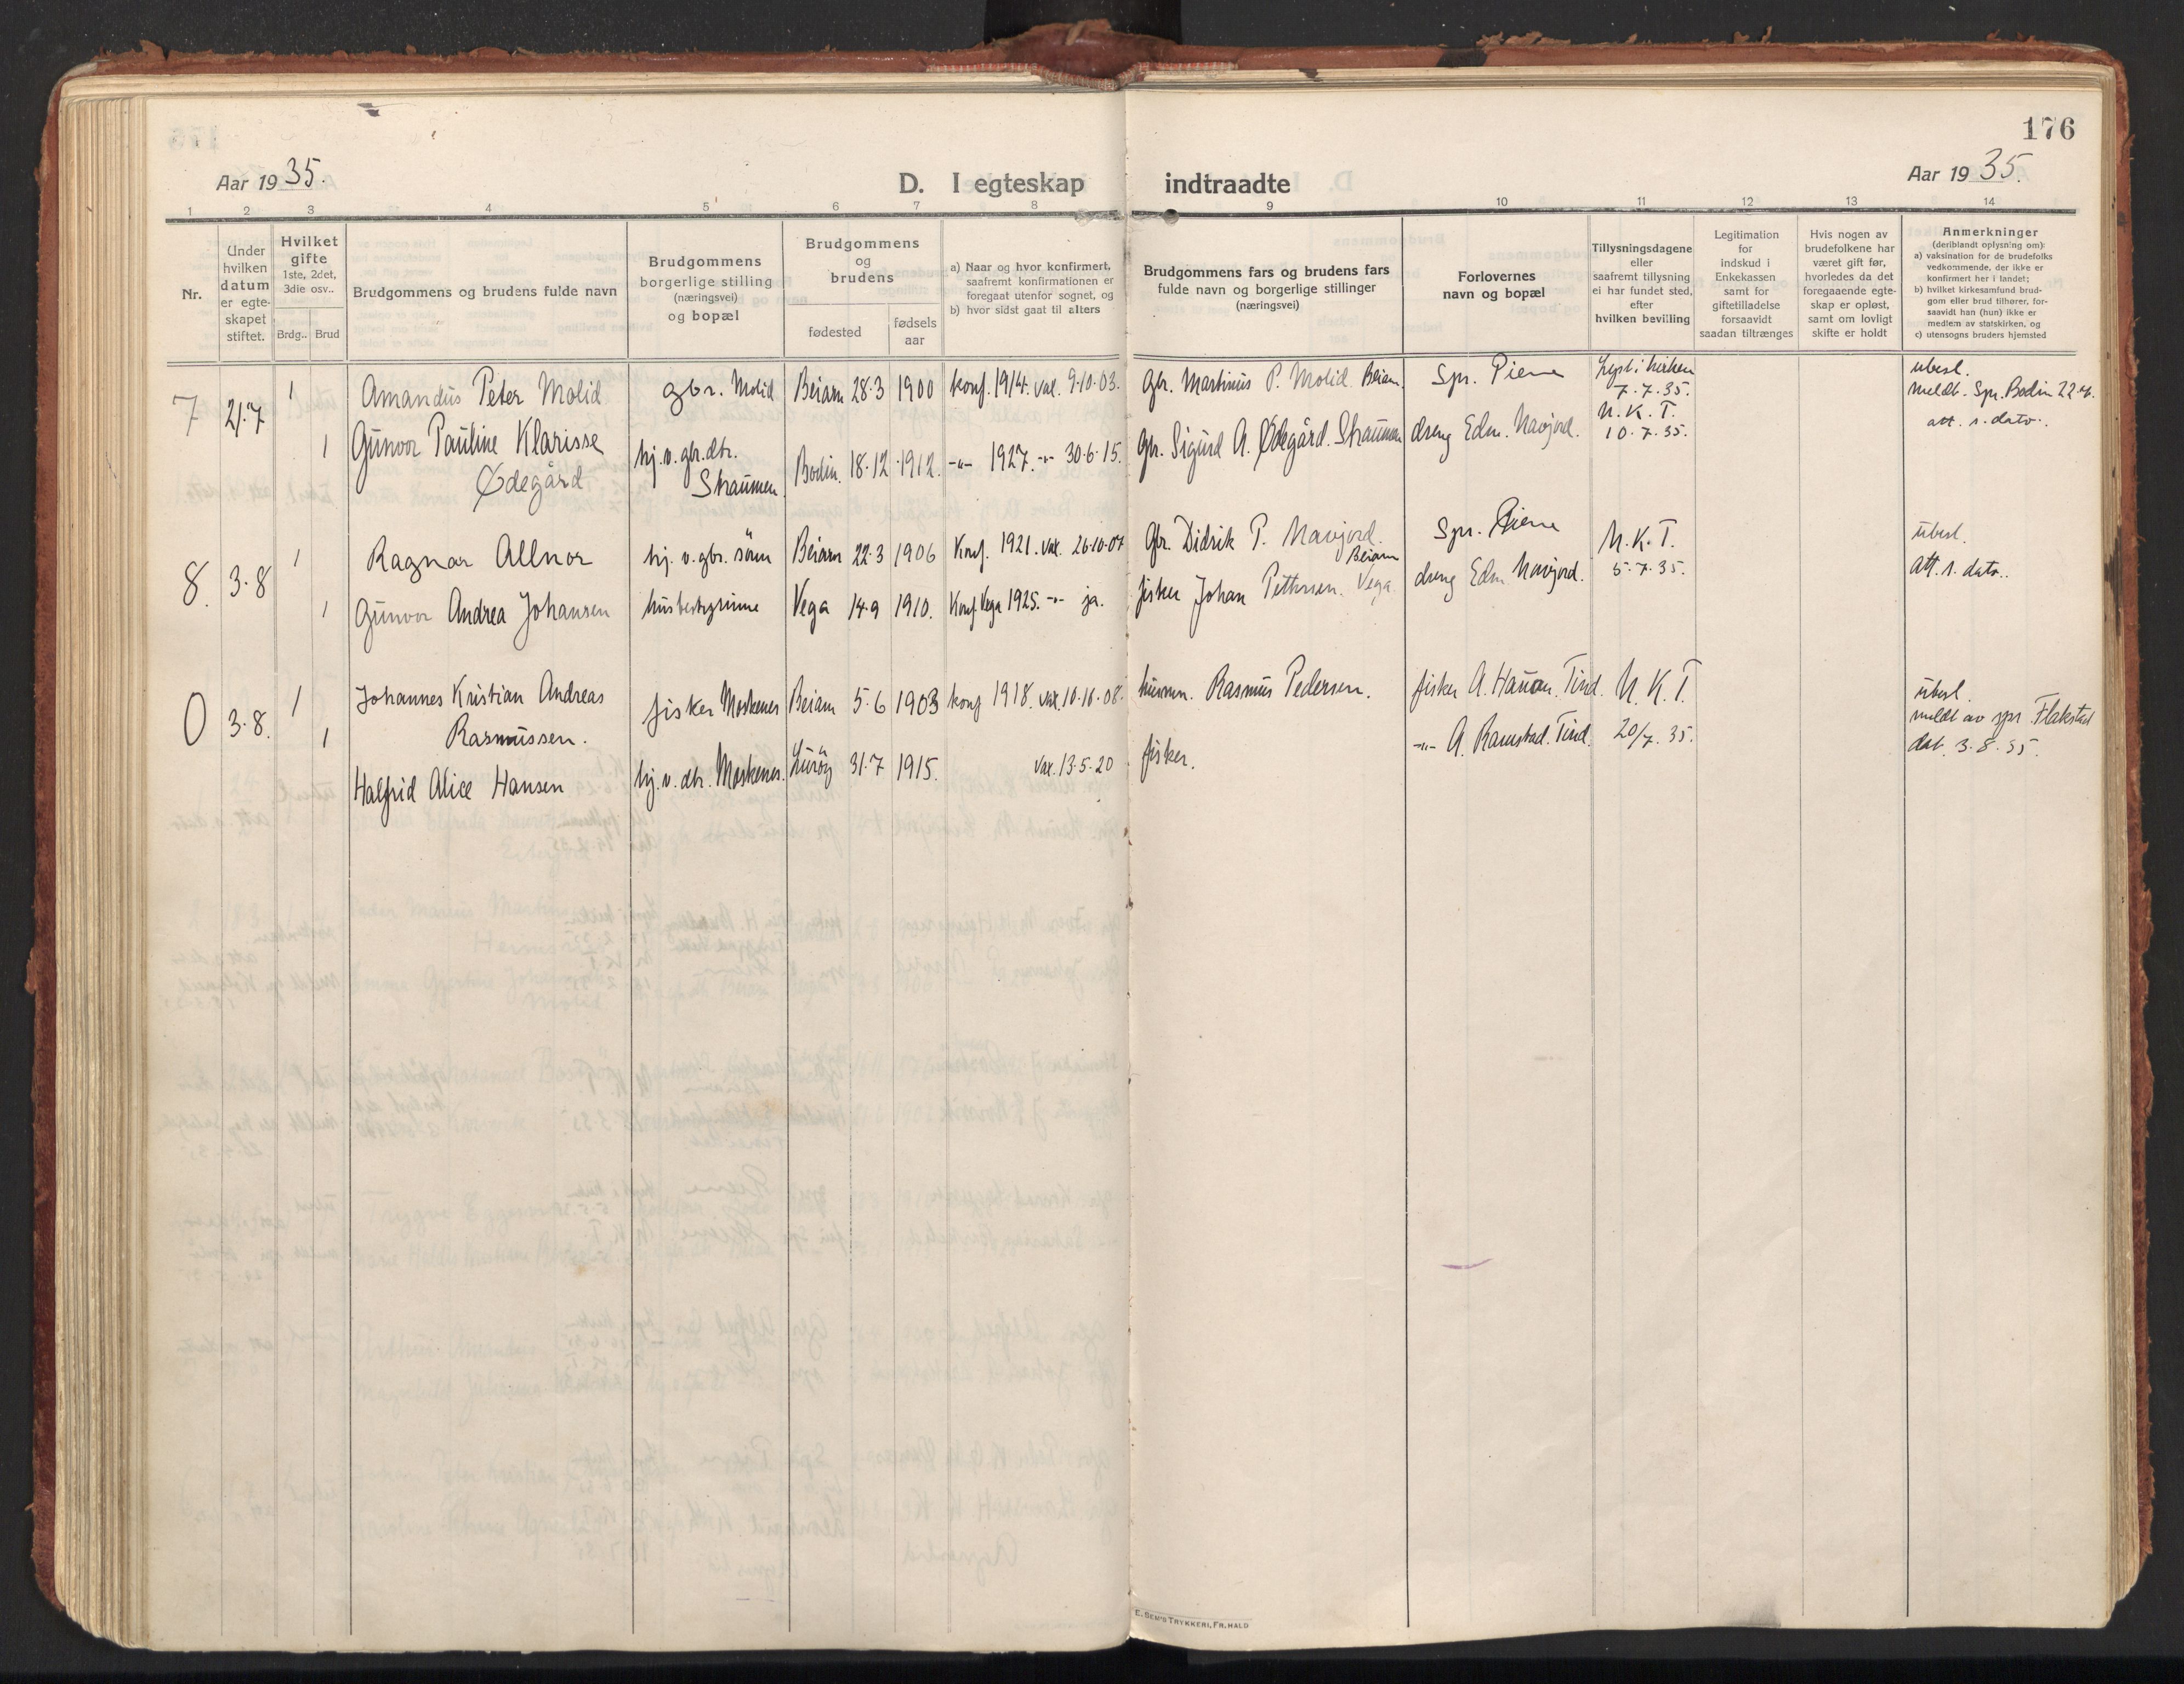 176
Aar 1935.
D. I egteskap indtraadte
Aar 1935.
1 2 3 4 5 6 7 8 9 10 11 12 13 14
Nr.
Under
hvilken
datum
er egte-
skapet
stiftet.
Hvilket
gifte
1ste, 2det,
3die osv..
Brdg.. Brud
Brudgommens og brudens fulde navn
Brudgommens
borgerlige stilling
(næringsvei)
og bopæl
Brudgommens
og
brudens
fødested
fødsels
aar
a) Naar og hvor konfirmert,
saafremt konfirmationen er
foregaat utenfor sognet, og
b) hvor sidst gaat til alters
Brudgommens fars og brudens fars
fulde navn og borgerlige stillinger
(næringsvei)
Forlovernes
navn og bopæl
Tillysningsdagene
eller
saafremt tillysning
ei har fundet sted,
efter
hvilken bevilling
Legitimation
for
indskud i
Enkekassen
samt for
giftetilladelse
forsaavidt
saadan tiltrænges
Hvis nogen av
brudefolkene har
været gift før,
hvorledes da det
foregaaende egte-
skap er opløst,
samt om lovligt
skifte er holdt
Anmerkninger
(deriblandt oplysning om):
a) vaksination for de brudefolks
vedkommende, der ikke er
konfirmert her i landet;
b) hvilket kirkesamfund brud-
gom eller brud tilhører, for-
saavidt han (hun) ikke er
medlem av statskirken, og
c) utensogns bruders hjemsted
7 21.7 1 Amandus Peter Molid gbr. Molid Beiarn 28.3 1900 konf. 1914. vax. 9.10.03. Gbr. Martinius P. Molid. Beiarn. Spr. Piene Lyst i kirken
7.7.35.
ubesl.
meldt. Spr. Bodin 22.7.
1 Gunvor Pauline Klarisse
Ødegård hj.v.gbr.dtr.
Straumen. Bodin. 18.12 1912. -"- 1927. -"- 30.6.15. Gbr. Sigurd A. Ødegård. Straumen dreng Edm. Navjord. N.K.T.
10.7.35.
att. s. dato.
8. 3.8 1 Ragnar Allnor hj. v. gbr. sönn Beiarn 22.3 1906 Konf. 1921. vax. 26.10.07 Gbr. Didrik P. Navjord.
Beiarn
Spr. Piene N.K.T.
5.7.35.
ubesl.
1 Gunvor Andrea Johansen husbestyrinne Vega 14.9 1910. Konf. Vega 1925. -"- ja. fisker Johan Pettersen. Vega dreng Edm. Navjord.
Att. s. dato..
0 3.8. 1 Johannes Kristian Andreas
Rasmussen. fisker Moskenes Beiarn 5.6 1903 konf 1918. vax. 10.10.08. Rasmus Pedersen. fisker A. Hanan. Tind. N.K.T.
20/7.35.
ubesl.
meldt av spr. Flakstad
dat. 3.8.35.
1 Halfrid Alice Hansen hj.v.dtr. Moskenes. Luröy 31.7 1915. vax. 13.5.20 fisker. -"- A. Ramstad. Tind.
E. SEM'S TRYKKERI, FR.HALD